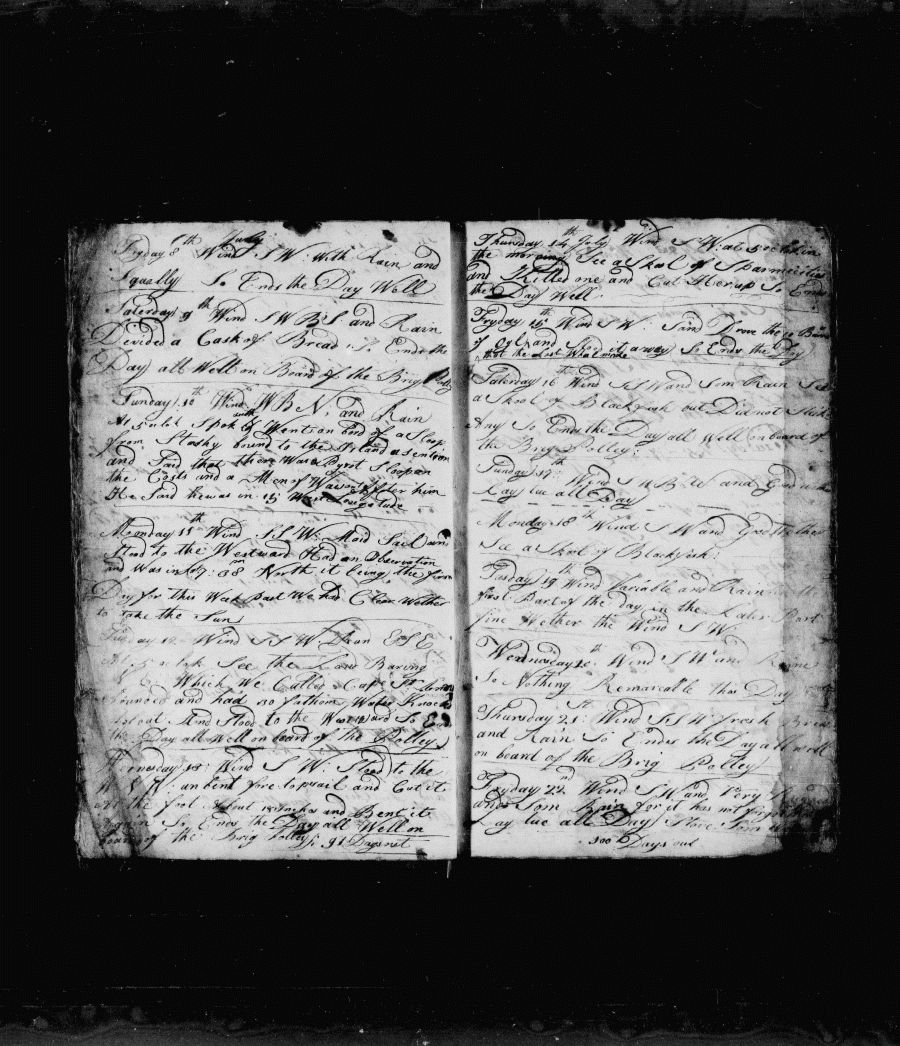 July
Fryday 8th Wind SW: With Rain and
Squally So Ends the Day Well
Saterday 9th Wind SWBS and Rain
Devided a Cask of Bread So Ends the
Day all Well on Board of the Brig Polley
Sunday 10th Wind WBN, and Rain
At 5 oclok Spok with Went on bord of a Sloop
from bound to the
and Said that thare Was a Sloop on
the Costs and a Men of War after him
He Said he was in 15 West Longetude
Monday 11th Wind SSW: Maid Sail and
Stood to the Westward Had an Observation
and Was in 38m North it being the first
Day for this Week past We had Clear Wether
to take the Sun
Wind SSW Down ESE
See the Land Baring
Which We Called Cape
Sounded and had 80 fathom Water
out And Stood to the Westward So Ends
the Day all Well on board of the Polley
Wensday 13: Wind SW: Stood to the
unbent fore topsail and Cut it
the foot About Inches and Bent it
again So Ends the Day all Well on
board of the Brig Polley 91 Days out
Thursday 14th July Wind SW: at 5 oclok in
the morning See a Skool of Sparmecities
and Killed one and Cut Her up So Ends
the Day Well
Fryday 15th Wind SW: Sam Drove the Barrels
of Oyl and Stoed it away So Ends the Day
that the Last Whale made
Saterday 16th Wind SSW and Som Rain See
a Skool of Blackfish but Did not Strike
Any So Ends the Day all Well on board of
the Brig Polley:
Sunday 17th Wind and
Lay lue all Day
Monday 18th Wind SW and Good Wether
See a Skool of Blackfish:
Tusday 19th Wind Variable and Rain in the
first Part of the Day in the Later Part
fine Wether the Wind SW
Wennsday 20th Wind SW and
So Nothing Remarcable this Day
Thursday 21st: Wind SSW fresh Breas
and Rain So Ends the Day all well
on board of the Brig Polley
Fryday 22nd Wind SW and Very
and Som Rain for it has not
Lay lue all Day
100 Days out